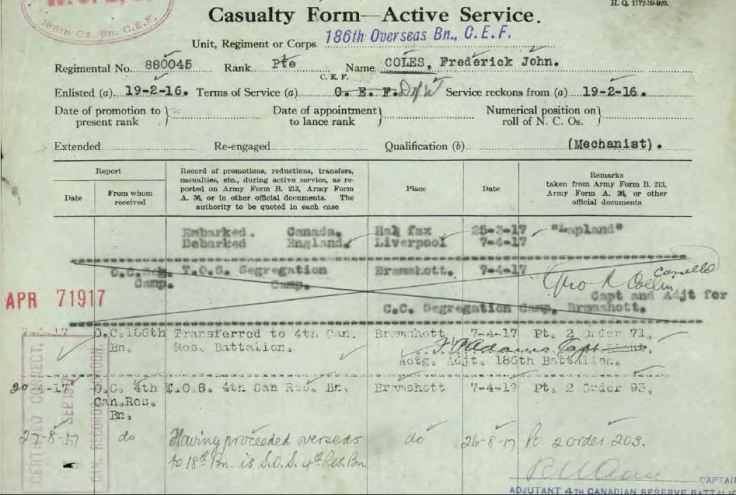 H. Q. 1772-39-920.
186th Os. Bn. C.E.F.
Casualty Form—Active Service.
Unit, Regiment or Corps 186th Overseas Bn., C.E.F.
Regimental No. 880045 Rank Pte Name COLES, Frederick John.
C. E. F.
Enlisted (a) 19-2-16. Terms of Service (a) C. E. F. D of W Service reckons from (a) 19-2-16.
Date of promotion to present rank } Date of appointment to lance rank } Numerical position on roll of N. C. Os. }
Extended Re-engaged Qualification (b) (Mechanist).
Report
Date
From whom received
Record of promotions, reductions, transfers,
casualties, etc., during active service, as re-
ported on Army Form B. 213, Army Form
A. 36, or in other official documents. The
authority to be quoted in each case
Place
Date
Remarks
taken from Army Form B. 213,
Army Form A. 36, or other
official documents
Embarked. Canada. Halifax 25-3-17 "Lapland"
Debarked England. Liverpool 7-4-17
C.C. Seg. T.O.S. Segregation Bramshott. 7-4-17
Camp. Camp.
Cancelled
Capt and Adjt for
C.C. Segregation Camp, Bramshott.
APR 7 1917
O.C. 186th Transferred to 4th Can. Bramshott 7-4-17 Pt. 2 Order 71,
Bn. Res. Battalion.
Adams, Capt
Actg. Adjt. 186th Battalion.
O.C. 4th T.O.S. 4th Can Res. Bn. Bramshott 7-4-17 Pt. 2 Order 93,
Can.Res.
Bn,
27-8-17 do Having proceeded overseas do 26-8-17 Pt 2 order 203.
to 18th Bn. is S.O.S. 4th Res Bn.
CERTIFIED CORRECT.
CAN. RECORD
CAPTAIN
ADJUTANT 4TH CANADIAN RESERVE BATTALION